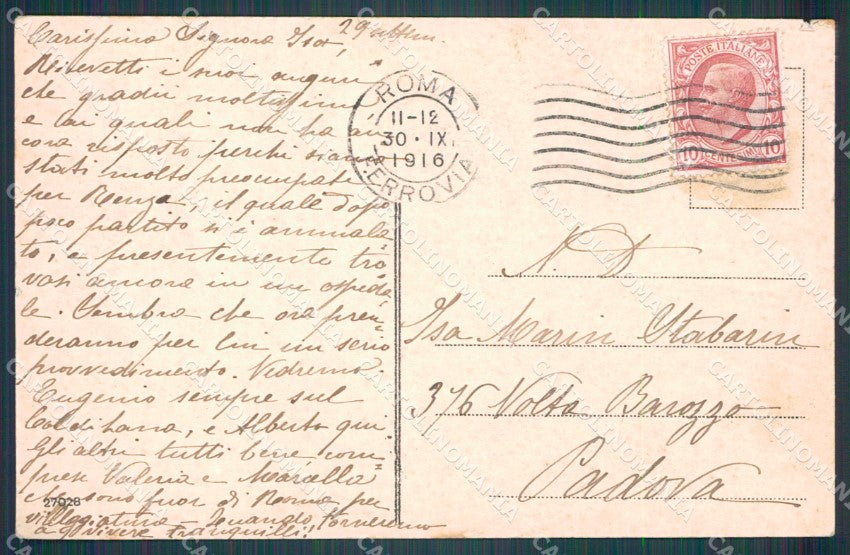 Carissima Signora Isa,
29 settem.
Ricevetti i suoi auguri
che gradii moltissimo
e ai quali non ho an
cora risposto perchè siamo
stati molto preoccupati
per Renzo, il quale dopo
poco partito si è ammala
to, e presentemente tro
vasi ancora in un ospeda
le. Sembra che ora pren
deranno per lui un serio
provvedimento. Vedremo.
Eugenio sempre sul
Col di Lana, e Alberto qui
Gli altri tutti bene com
prese Valeria e Marcella
che sono fuor di Roma per
villeggiatura - Quando torneremo
a vivere tranquilli!
27028
ROMA
11-12
30 · IX.
1916
FERROVIA
POSTE ITALIANE
10 CENTESIMI 10
N. D.
Isa Marin Stabarin
376 Volto Barozzo
Padova
CARTOLINOMANIA